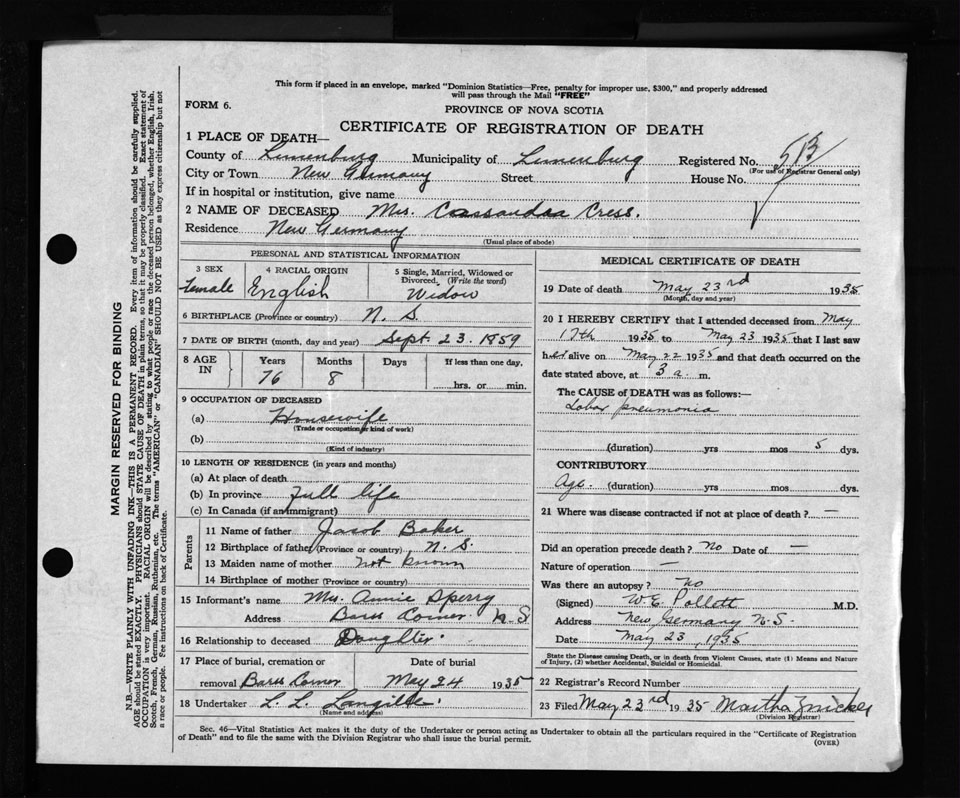 This form if placed in an envelope, marked "Dominion Statistics—Free, penalty for improper use, $300," and properly addressed
will pass through the Mail "FREE"
FORM 6.
PROVINCE OF NOVA SCOTIA
CERTIFICATE OF REGISTRATION OF DEATH
1 PLACE OF DEATH—
County of Lunenburg Municipality of Lunenburg Registered No.
(For use of Registrar General only)
City or Town New Germany Street House No.
If in hospital or institution, give name
2 NAME OF DECEASED Mrs. Cassandra Cress.
Residence New Germany
(Usual place of abode)
PERSONAL AND STATISTICAL INFORMATION
3 SEX Female
4 RACIAL ORIGIN English
5 Single, Married, Widowed or Divorced, (Write the word)
Widow
6 BIRTHPLACE (Province or country) N. S.
7 DATE OF BIRTH (month, day and year) Sept. 23. 1859
8 AGE IN Years Months Days If less than one day,
76 8 hrs. or min.
9 OCCUPATION OF DECEASED
(a) Housewife
(Trade or occupation or kind of work)
(b)
(Kind of industry)
10 LENGTH OF RESIDENCE (in years and months)
(a) At place of death
(b) In province Full life
(c) In Canada (if an immigrant)
Parents
11 Name of father Jacob Baker
12 Birthplace of father (Province or country) N. S.
13 Maiden name of mother not known
14 Birthplace of mother (Province or country)
15 Informant's name Mrs. Annie Sperry
Address Barss Corner N. S.
16 Relationship to deceased Daughter.
17 Place of burial, cremation or Date of burial
removal Barss Corner May 24 1935
18 Undertaker L. L. Langille.
(Name and address)
MEDICAL CERTIFICATE OF DEATH
19 Date of death May 23rd 1935
(Month, day and year)
20 I HEREBY CERTIFY that I attended deceased from May
17th 1935 to May 23 1935 that I last saw
her alive on May 22 1935 and that death occurred on the
date stated above, at 3 a. m.
The CAUSE OF DEATH was as follows:—
Lobar pneumonia
(duration) yrs mos 5 dys.
CONTRIBUTORY
Age. (duration) yrs mos dys.
21 Where was disease contracted if not at place of death? —
Did an operation precede death? No Date of —
Nature of operation —
Was there an autopsy? no
(Signed) W E Pollett M.D.
Address New Germany N. S.
Date May 23 1935
State the Disease causing Death, or in death from Violent Causes, state (1) Means and Nature
of Injury, (2) whether Accidental, Suicidal or Homicidal.
22 Registrar's Record Number
23 Filed May 23rd 1935 Martha Zwicker
(Division Registrar)
Sec. 46—Vital Statistics Act makes it the duty of the Undertaker or person acting as Undertaker to obtain all the particulars required in the "Certificate of Registration
of Death" and to file the same with the Division Registrar who shall issue the burial permit.
(OVER)
MARGIN RESERVED FOR BINDING
N.B.—WRITE PLAINLY WITH UNFADING INK—THIS IS A PERMANENT RECORD. Every item of information should be carefully supplied.
AGE should be stated EXACTLY. PHYSICIANS should STATE CAUSE OF DEATH in plain terms, so that it may be properly classified. Exact statement of
OCCUPATION is very important. RACIAL ORIGIN will be described by stating to what people or race the deceased person belonged, whether English, Irish,
Scotch, French, German, Russian, Ruthenian, etc. The terms "AMERICAN" or "CANADIAN" SHOULD NOT BE USED as they express citizenship but not
a race or people. Fee instructions on back of Certificate.